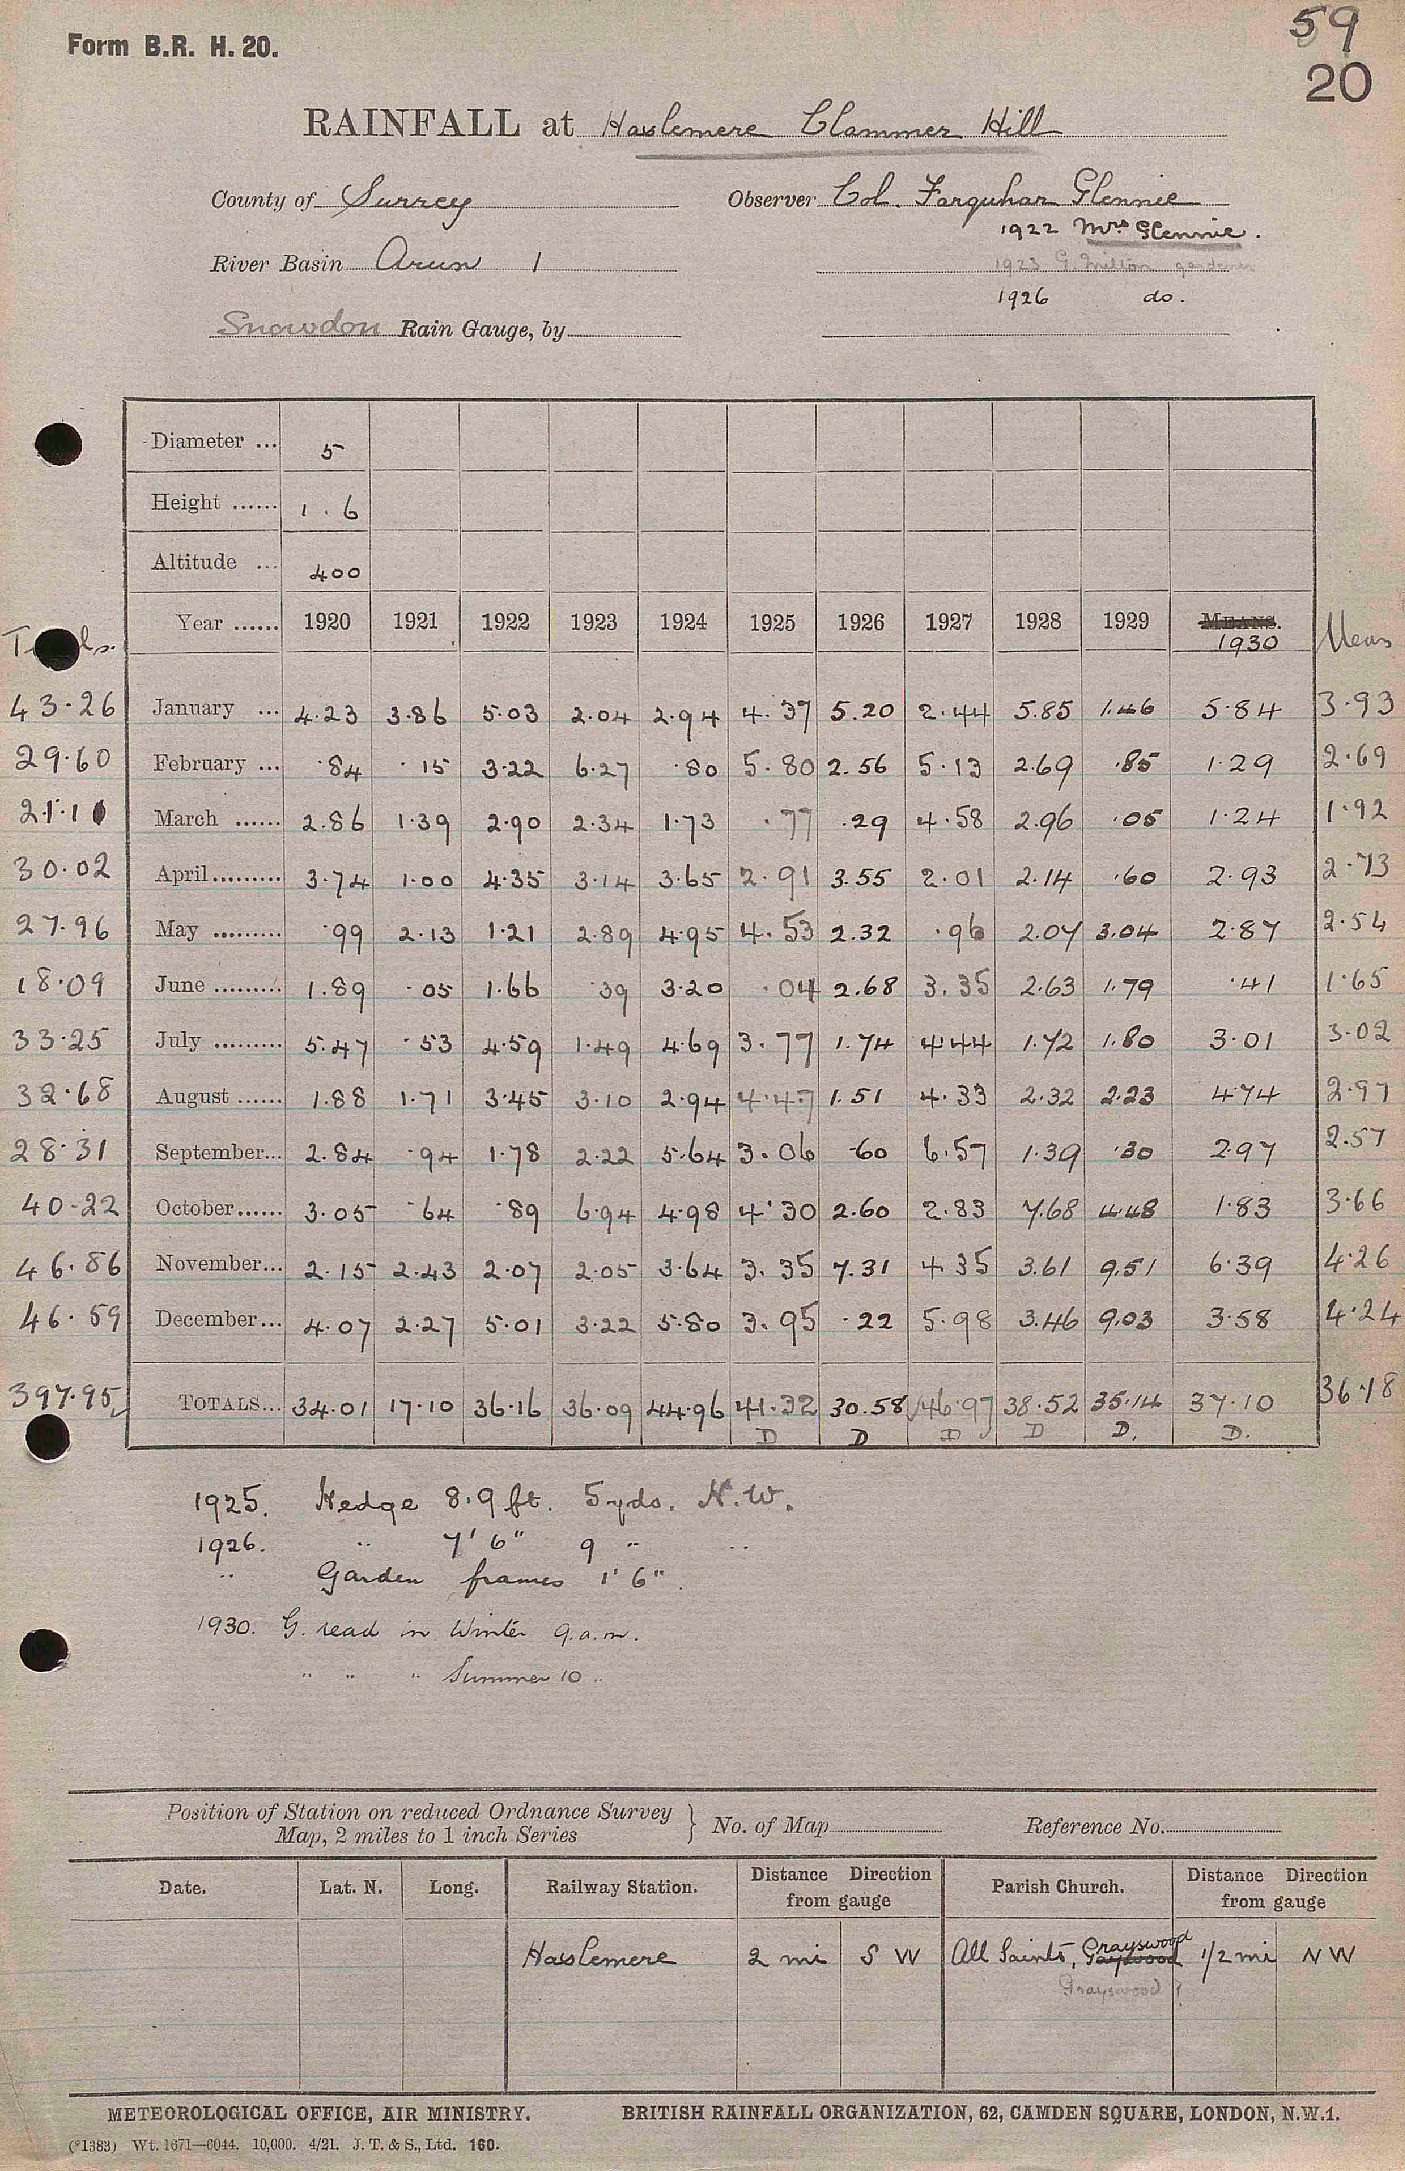 Form B.R. H. 20.
59
20
RAINFALL at Haslemere Clammer Hill
County of Surrey Observer Col. Farquhar Glennie
1922 Mrs Glennie.
River Basin Arun 1 1923 G. Milton gardener
1926 do.
Snowdon Rain Gauge, by
Diameter ... 5
Height ...... 1.6
Altitude ... 400
Totals. Year ...... 1920 1921 1922 1923 1924 1925 1926 1927 1928 1929 MEANS. 1930 Means
43.26 January ... 4.23 3.86 5.03 2.04 2.94 4.37 5.20 2.44 5.85 1.46 5.84 3.93
29.60 February ... .84 .15 3.22 6.27 .80 5.80 2.56 5.13 2.69 .85 1.29 2.69
21.11 March ...... 2.86 1.39 2.90 2.34 1.73 .77 .29 4.58 2.96 .05 1.24 1.92
30.02 April ......... 3.74 1.00 4.35 3.14 3.65 2.91 3.55 2.01 2.14 .60 2.93 2.73
27.96 May ......... .99 2.13 1.21 2.89 4.95 4.53 2.32 .96 2.07 3.04 2.87 2.54
18.09 June ......... 1.89 .05 1.66 .39 3.20 .04 2.68 3.35 2.63 1.79 .41 1.65
33.25 July ......... 5.47 .53 4.59 1.49 4.69 3.77 1.74 4.44 1.72 1.80 3.01 3.02
32.68 August ...... 1.88 1.71 3.45 3.10 2.94 4.47 1.51 4.33 2.32 2.23 4.74 2.97
28.31 September... 2.84 .94 1.78 2.22 5.64 3.06 .60 6.57 1.39 .30 2.97 2.57
40.22 October...... 3.05 .64 .89 6.94 4.98 4.30 2.60 2.83 7.68 4.48 1.83 3.66
46.86 November... 2.15 2.43 2.07 2.05 3.64 3.35 7.31 4.35 3.61 9.51 6.39 4.26
46.59 December... 4.07 2.27 5.01 3.22 5.80 3.95 .22 5.98 3.46 9.03 3.58 4.24
397.95 TOTALS... 34.01 17.10 36.16 36.09 44.96 41.32 30.58 46.97 38.52 35.14 37.10 36.18
D D D D D. D.
1925. Hedge 8.9 ft. 5 yds. N.W.
1926. " 7' 6" 9 " "
" Garden frames 1' 6".
1930. G. read in Winter 9.a.m.
" " " Summer 10 "
Position of Station on reduced Ordnance Survey
Map, 2 miles to 1 inch Series } No. of Map Reference No.
Date. Lat. N. Long. Railway Station. Distance Direction from gauge Parish Church. Distance Direction from gauge
Haslemere 2 mi S W All Saints, Grayswood 1/2 mi N W
Grayswood ?
METEOROLOGICAL OFFICE, AIR MINISTRY. BRITISH RAINFALL ORGANIZATION, 62, CAMDEN SQUARE, LONDON, N.W.1.
(*1383) Wt. 1671—6044. 10,000. 4/21. J. T. & S., Ltd. 160.